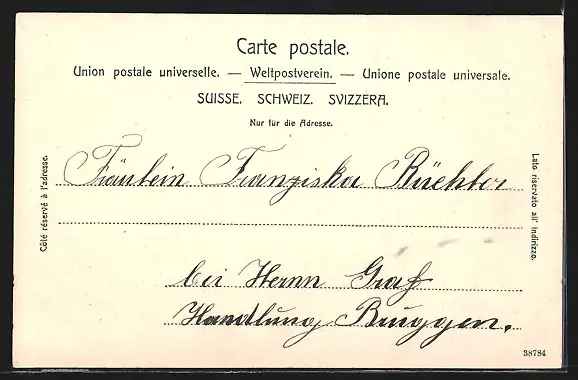 Carte postale.
Union postale universelle. — Weltpostverein. — Unione postale universale.
SUISSE. SCHWEIZ. SVIZZERA.
Nur für die Adresse.
Côté réservé à l'adresse.
Fräulein Franziska Büchler
Lato riservato all' indirizzo.
bei Herrn Graf
Handlung Bruggen.
38784